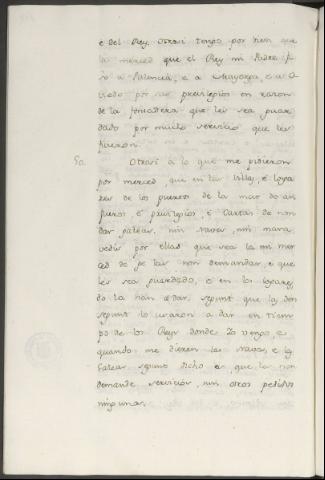 e del Rey. Otrosi tengo por bien que
la merced que el Rey mi Padre fi
zo a Palencia, e a Mayorga, e a O
viedo por sus previlegios en razon
de la fonsadera que les sea guar
dado por mucho servicio que les
ficieron.
50. Otrosi à lo que me pidieron
por merced, que en las Villas, e Loga
res de los puertos de la mar do an
fueros e previlegios, e Cartas de non
dar galeas, nin naves, nin mara
vedis por ellas que sea la mi mer
ced de ge las non demandar, e que
les sea guardado, e en los logares
do la han a dar, segunt que la den
segunt lo usaron a dar en tiem
po de los Reys donde Yo vengo, e
quando me dieren las naves, e las
galeas segunt dicho es que les non
demande servicios, nin otros pechos
ningunos.